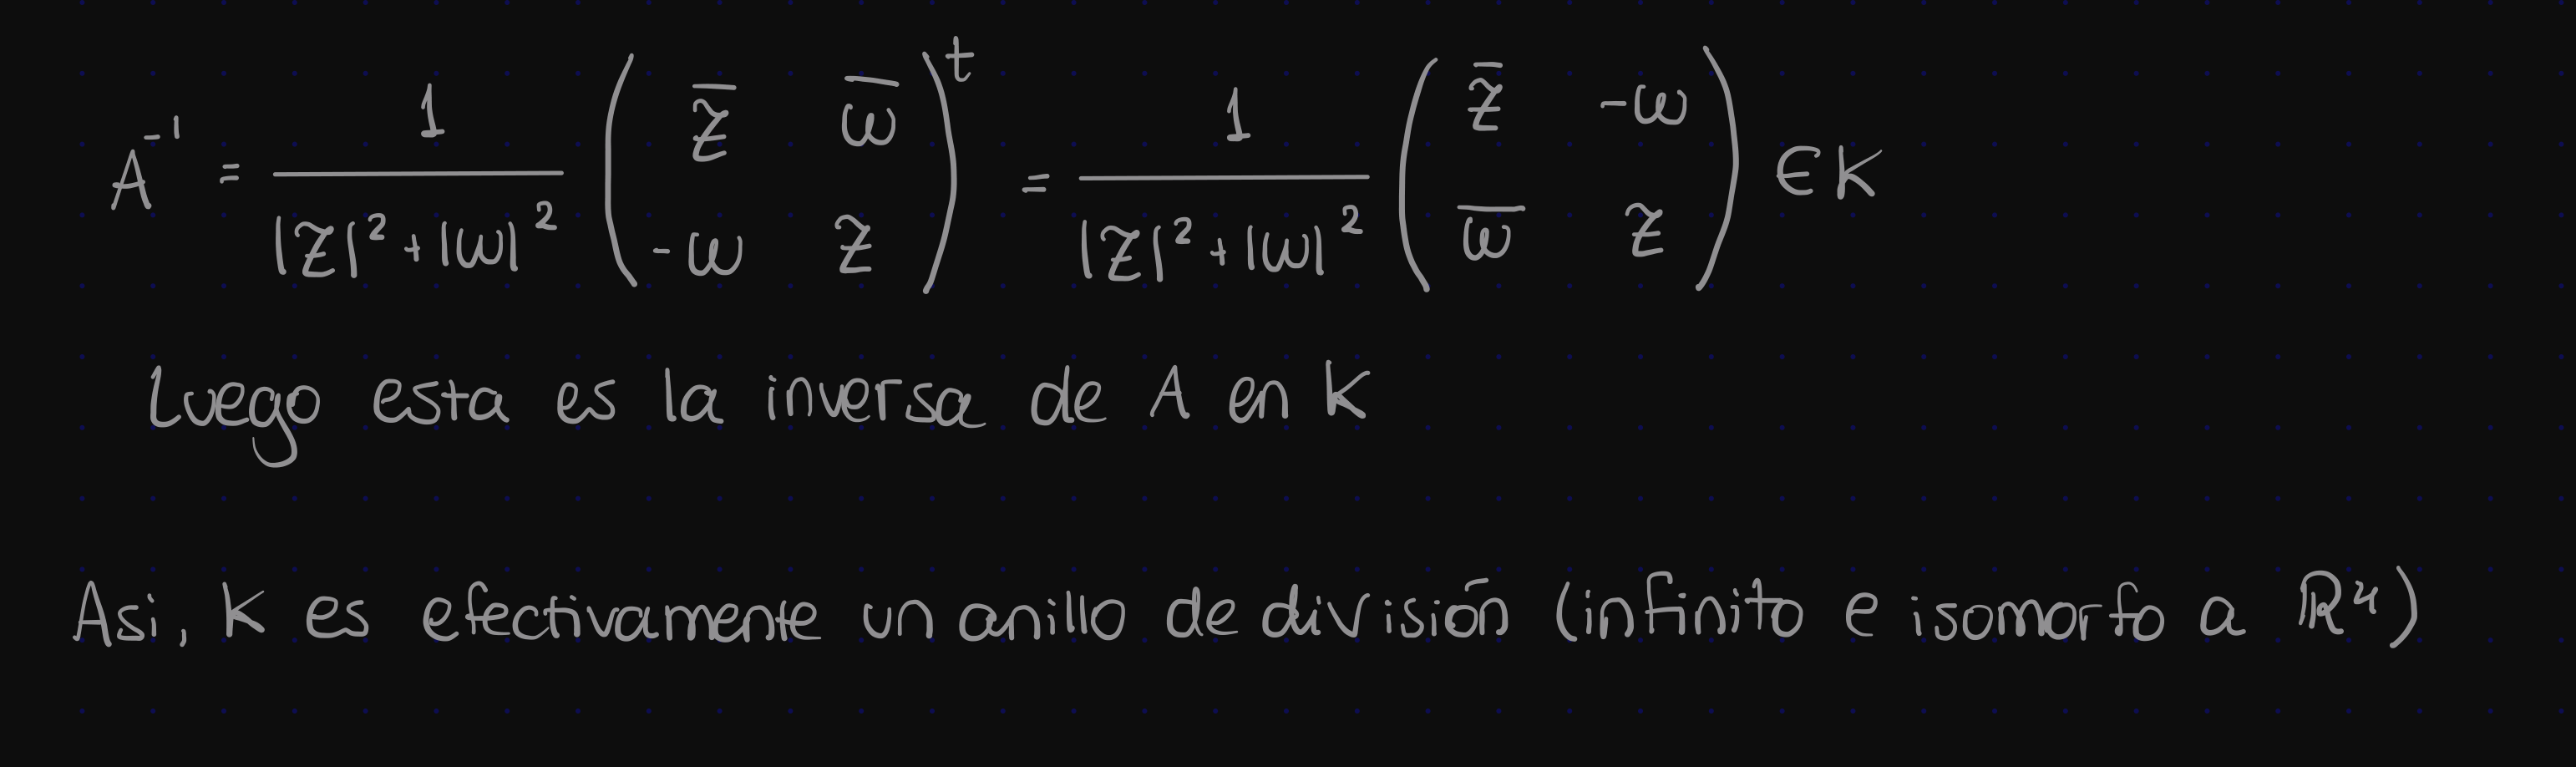 A⁻¹ = \frac{1}{|z|² + |w|²} \begin{pmatrix} \overline{z} & \overline{w} \\ -w & z \end{pmatrix}^t = \frac{1}{|z|² + |w|²} \begin{pmatrix} \overline{z} & -w \\ \overline{w} & z \end{pmatrix} ∈ K
Luego esta es la inversa de A en K
Asi, K es efectivamente un anillo de división (infinito e isomorfo a ℝ⁴)